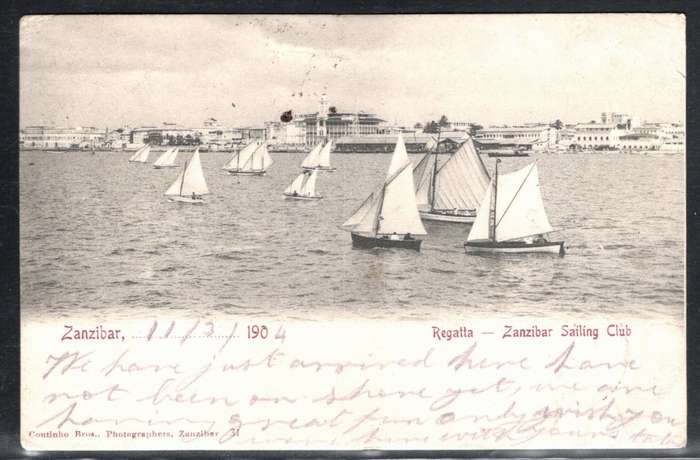 Zanzibar, 11/3/ 1904
Regatta — Zanzibar Sailing Club
We have just arrived here have
not been on shore yet, we are
having great fun only wish you
were here with
Coutinho Bros., Photographers, Zanzibar 31